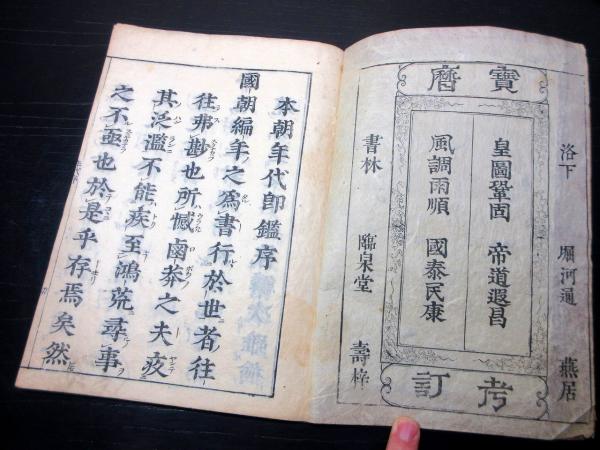 洛下 堀河通 燕居
寶曆
皇圖鞏固 帝道遐昌
風調雨順 國泰民康
考訂
書林 臨泉堂 壽梓
本朝年代即鑑序
國朝編年之爲書行於世者往
往弗尠也所憾鹵莽之夫疲
其泛濫不能疾至鴻荒尋事
之不亟也於是乎存焉矣然